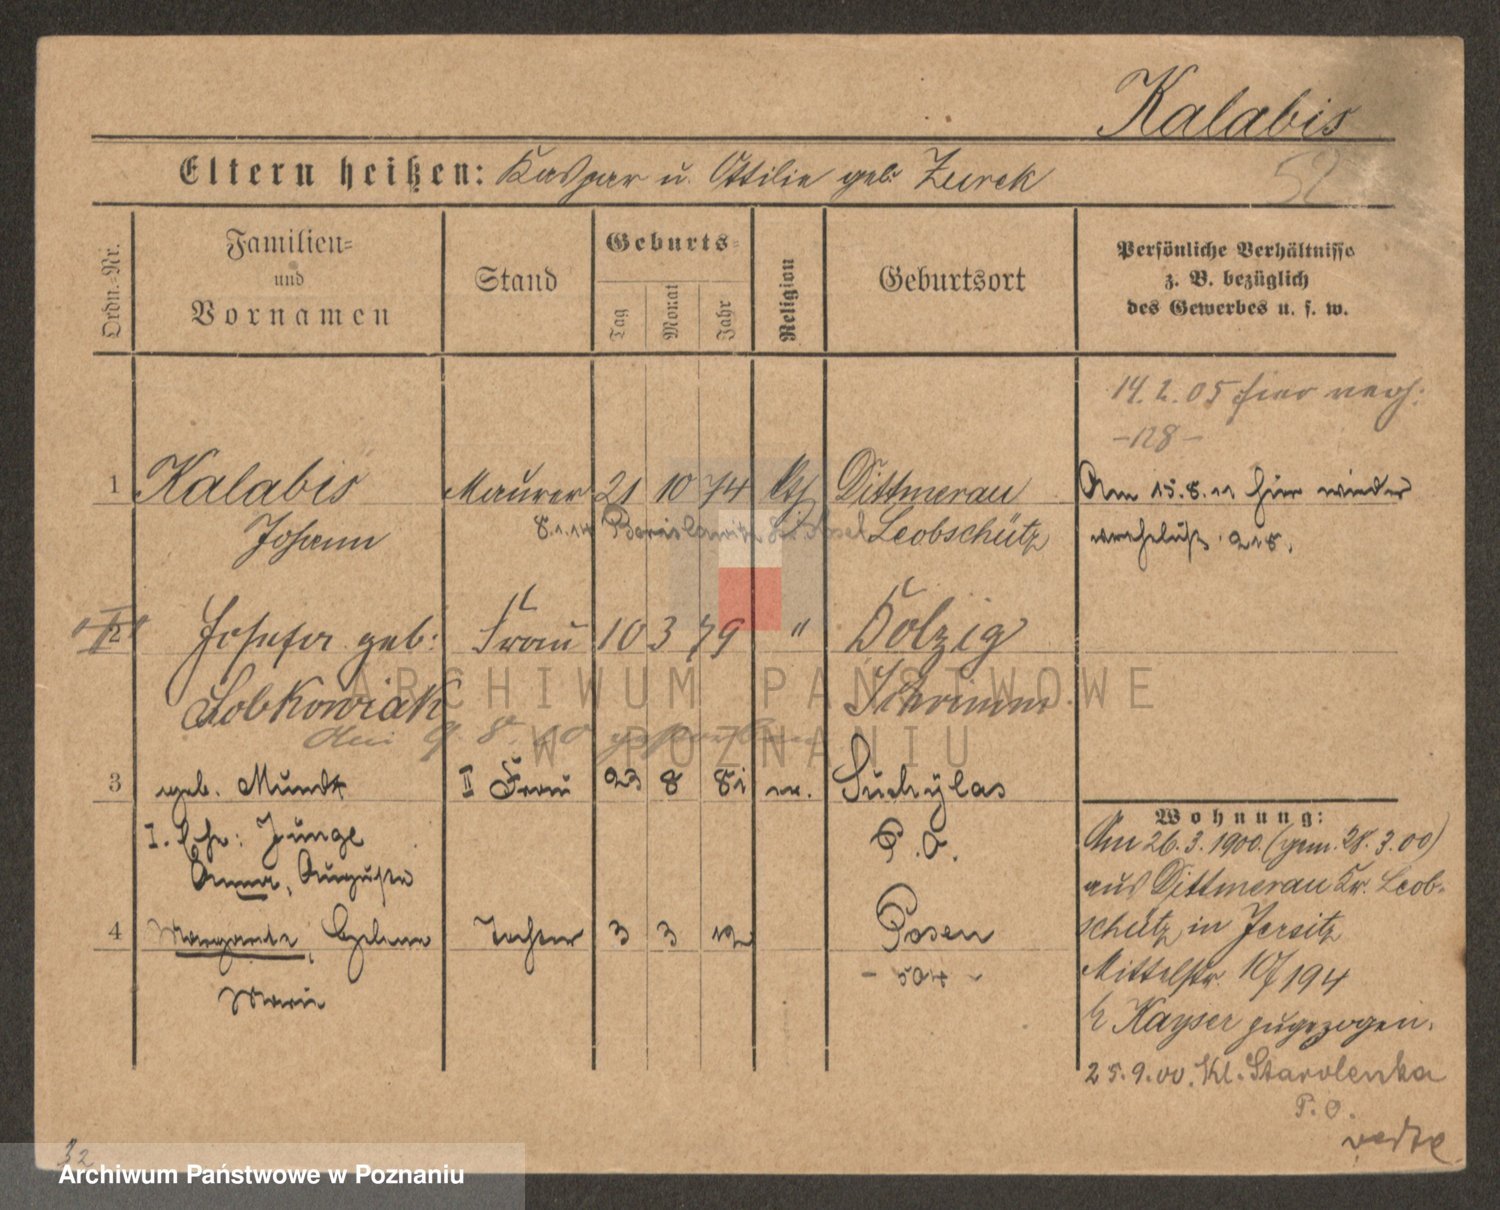 Kalabis
52
Eltern heißen: Kaspar u. Ottilie geb. Zurek
Ordn.-Nr.
Familien- und Vornamen
Stand
Geburts-
Tag
Monat
Jahr
Religion
Geburtsort
Persönliche Verhältnisse
z. B. bezüglich
des Gewerbes u. s. w.
14.2.05 hier verh:
-128-
1 Kalabis Maurer 21 10 74 Kth Dittmerau
Am 15.8.11 hier wieder
Johann 8.1.14 Leobschütz
verehelicht 218.
2 Josefa geb: Frau 10 3 79 " Dolzig
Sobkowiak Schrimm
den 9.8.10 gestorben
3 geb. Mundt II Frau 23 8 81 ev. Suchylas
I. Ehe: Junge P.O.
Anna, Augusta
4 Margarete, Helene Tochter 3 3 12 Posen
Marie - 504 -
Wohnung:
Am 26.3.1900. (gem. 28.3.00)
aus Dittmerau Kr. Leob-
schütz in Jersitz
Mittelstr. 10/194
b/ Kayser zugezogen.
25.9.00. Kl. Starolenka
P.O.
32
ARCHIWUM PAŃSTWOWE
W POZNANIU
Archiwum Państwowe w Poznaniu